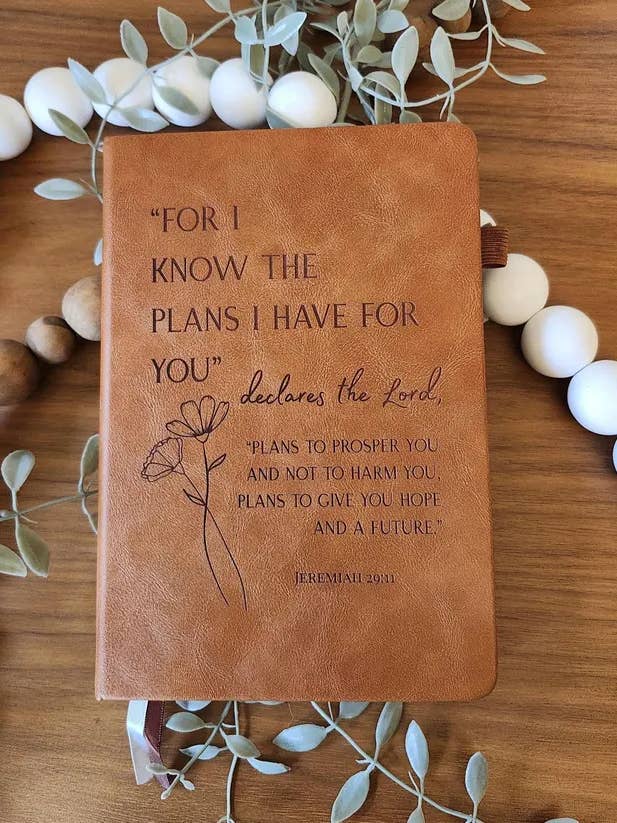 “FOR I
KNOW THE
PLANS I HAVE FOR
YOU”
declares the Lord,
“PLANS TO PROSPER YOU
AND NOT TO HARM YOU,
PLANS TO GIVE YOU HOPE
AND A FUTURE.”
JEREMIAH 29:11